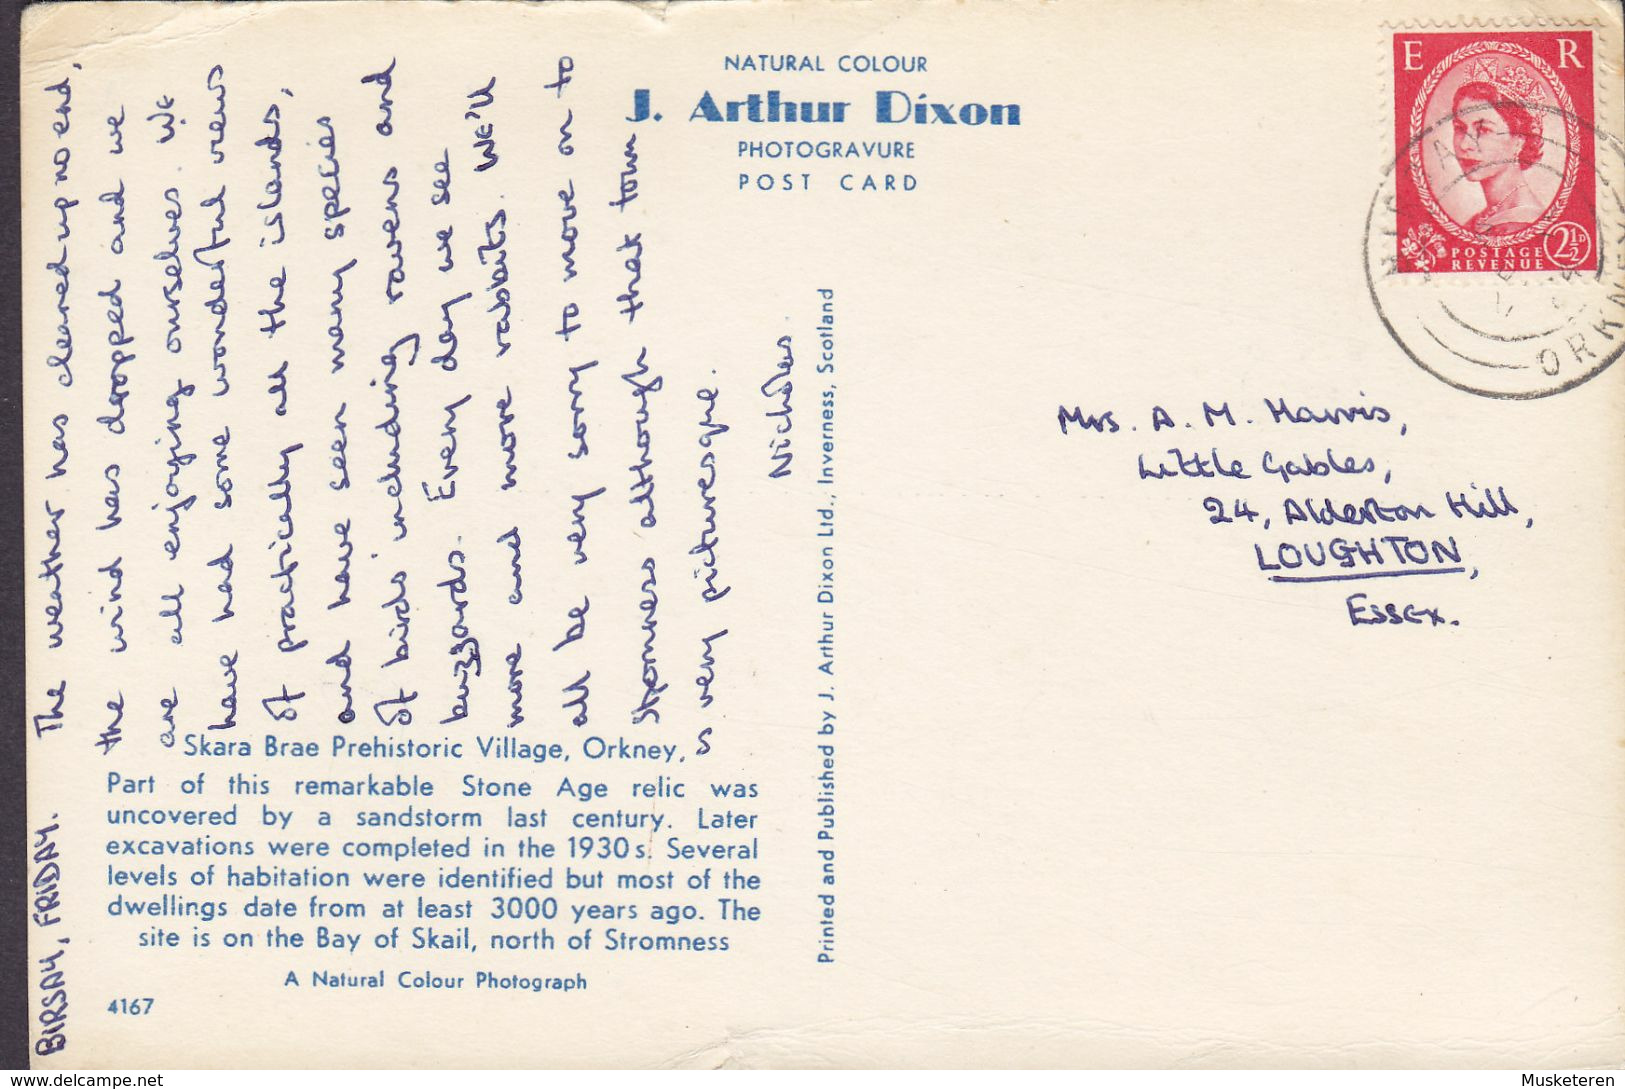 BIRSAY, FRIDAY. The weather has cleared up no end,
the wind has dropped and we
are all enjoying ourselves. We
have had some wonderful views
of practically all the islands,
and have seen many species
of birds including ravens and
buzzards. Every day we see
more and more rabbits. We'll
all be very sorry to move on to
Stromness although that town
is very picturesque.
Nicholas.
NATURAL COLOUR
J. Arthur Dixon
PHOTOGRAVURE
POST CARD
E R
POSTAGE
REVENUE
2½D
BIRSAY
ORKNEY
Mrs. A. M. Harris,
Little Gables,
24, Alderton Hill,
LOUGHTON,
Essex.
Skara Brae Prehistoric Village, Orkney,
Part of this remarkable Stone Age relic was
uncovered by a sandstorm last century. Later
excavations were completed in the 1930s. Several
levels of habitation were identified but most of the
dwellings date from at least 3000 years ago. The
site is on the Bay of Skail, north of Stromness
A Natural Colour Photograph
4167
Printed and Published by J. Arthur Dixon Ltd., Inverness, Scotland
Musketeren at delcampe.net